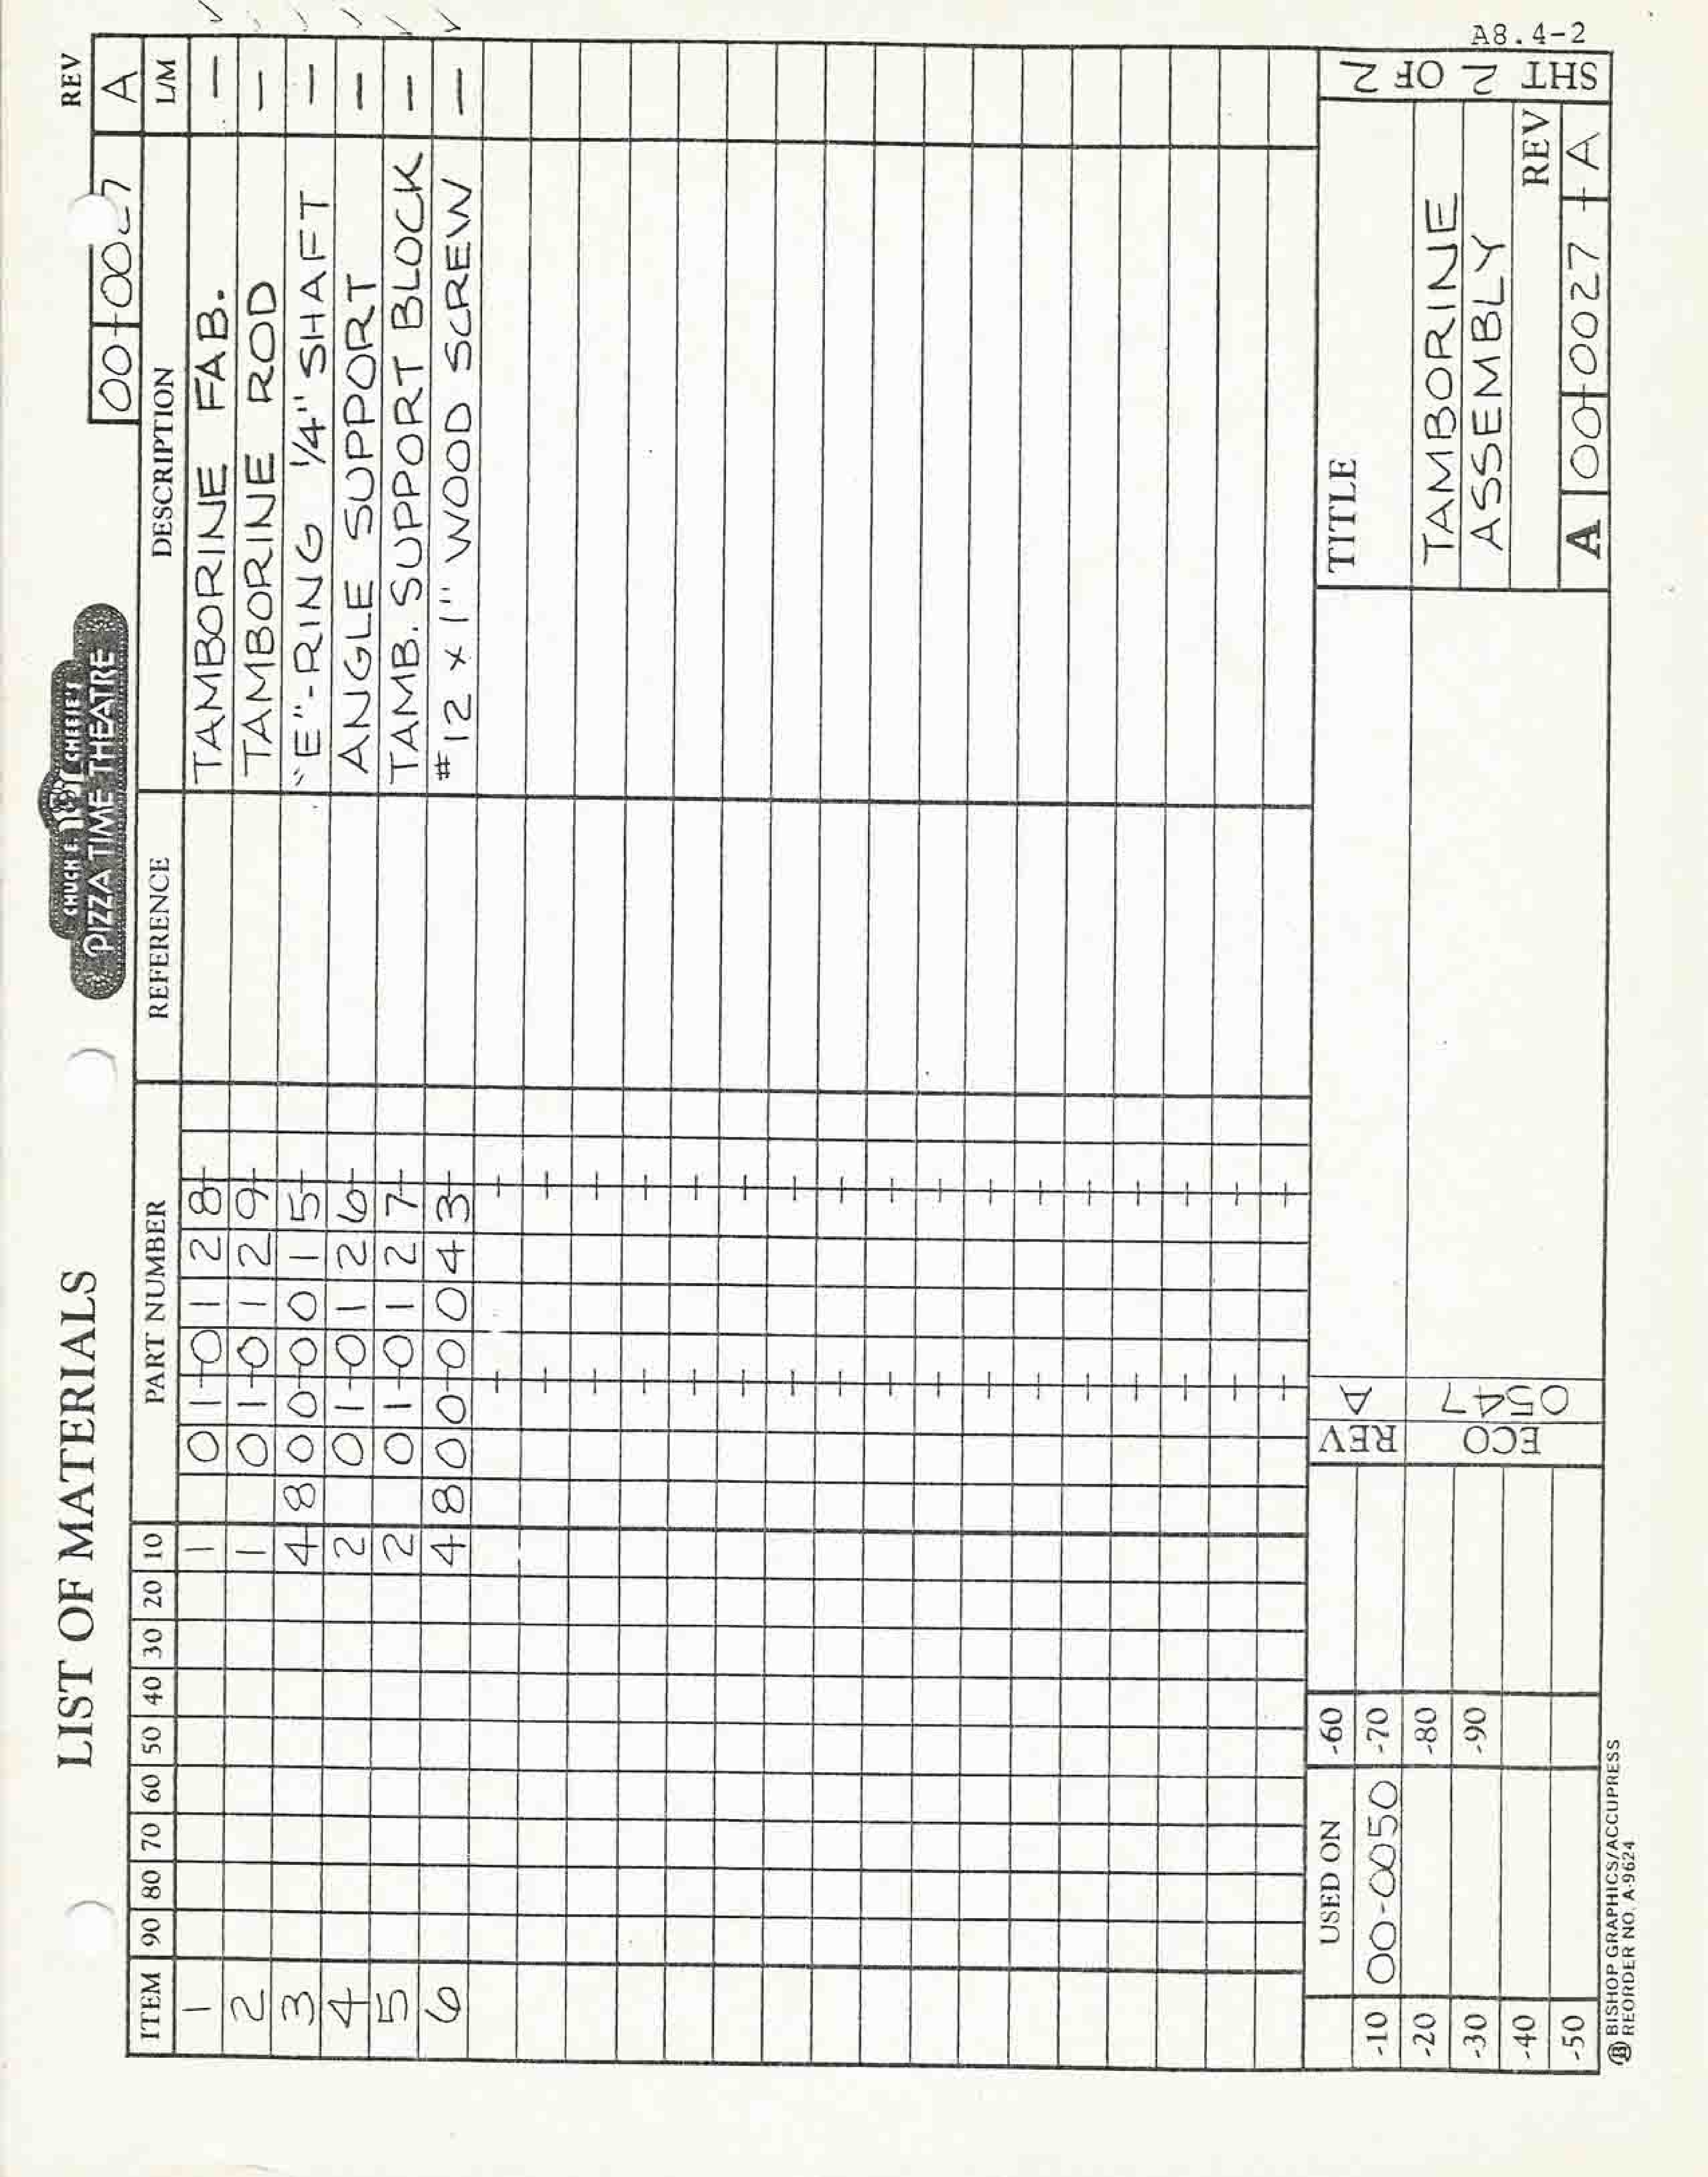 A8.4-2
LIST OF MATERIALS
CHUCK E. CHEESE'S
PIZZA TIME THEATRE
REV
00-0027 A
ITEM 90 80 70 60 50 40 30 20 10 PART NUMBER REFERENCE DESCRIPTION L/M
1 1 01-0128- TAMBORINE FAB. — ✓
2 1 01-0129- TAMBORINE ROD — ✓
3 4 800-0015- "E"-RING 1/4" SHAFT — ✓
4 2 01-0126- ANGLE SUPPORT — ✓
5 2 01-0127- TAMB. SUPPORT BLOCK — ✓
6 4 800-0043- #12 x 1" WOOD SCREW — ✓
USED ON -60
-10 00-0050 -70
-20 -80
-30 -90
-40
-50
REV A
ECO 0547
TITLE
TAMBORINE
ASSEMBLY
REV
A 00-0027-A
SHT 2 OF 2
BISHOP GRAPHICS/ACCUPRESS
REORDER NO. A-9624